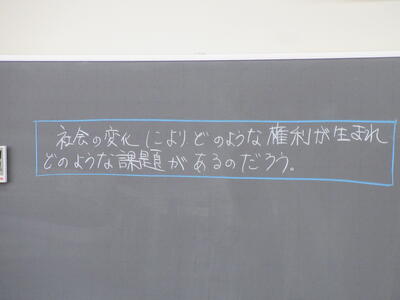 社会の変化によりどのような権利が生まれ
どのような課題があるのだろう。